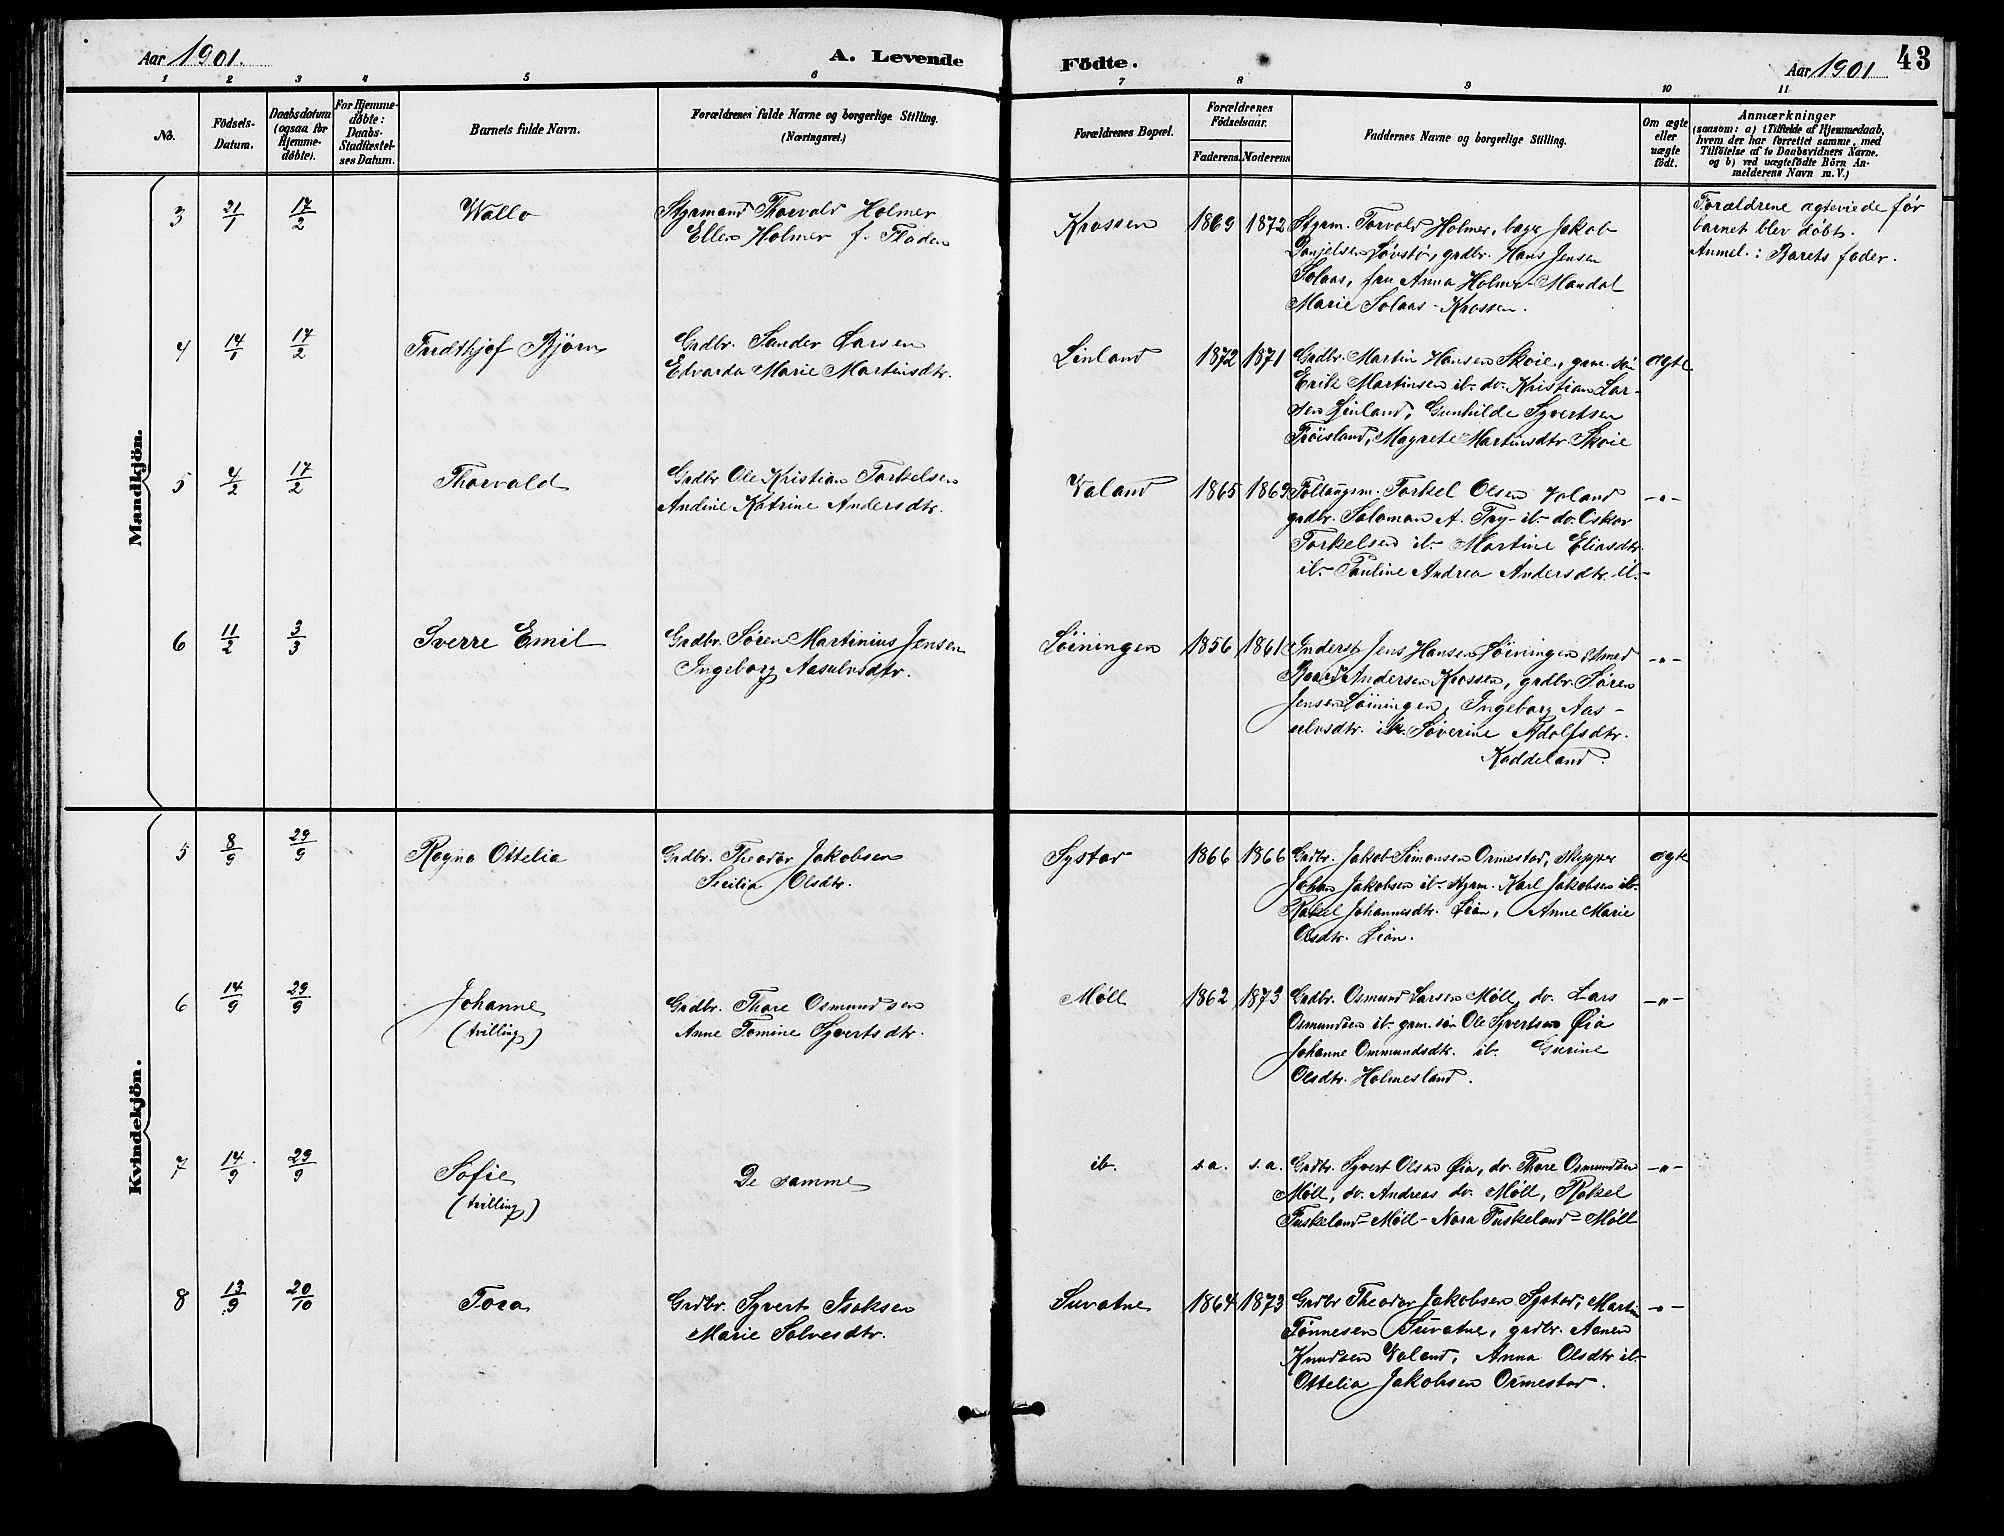 Aar 1901.
A. Levende Födte.
Aar 1901
43
1 2 3 4 5 6 7 8 9 10 11
No.
Födsels-
Datum.
Daabsdatum
(ogsaa for
Hjemme-
døbte).
For Hjemme-
døbte:
Daabs-
Stadfæstel-
ses Datum.
Barnets fulde Navn.
Forældrenes fulde Navne og borgerlige Stilling.
(Næringsvei.)
Forældrenes Bopæl.
Forældrenes
Födselsaar.
Faderens. Moderens.
Faddernes Navne og borgerlige Stilling.
Om ægte
eller
uægte
født.
Anmærkninger
(saasom: a) i Tilfælde af Hjemmedaab,
hvem der har forrettet samme, med
Tilföielse af to Daabsvidners Navne,
og b) ved uægtefödte Börn An-
melderens Navn m. V.)
Mandkjön.
3 21/1 17/2 Wallo
Styrmand Thorvald Holmer
Ellen Holmer f. Floden
Krossen 1869 1872
Styrm. Torvald Holmer, bager Jakob
Danjelsen Løvstø, grdbr. Hans Jensen
Solaas, fru Anna Holmer - Mandal
Marie Solaas - Krossen.
Forældrene ægteviede før
barnet blev døbt.
Anmel.: Barets fader.
4 14/1 17/2 Fridthjof Bjørn
Grdbr. Sander Larsen
Edvarda Marie Martinsdtr.
Linland 1872 1871
Grdbr. Martin Hansen Skoie, grm. søn
Erik Martinsen ib. do. Kristian Lar-
sen Linland, Gunhilde Syvertsen
Frøisland, Magrete Martinsdtr Skoie
ægte
5 4/2 17/2 Thorvald
Grdbr Ole Kristian Torkelsen
Andine Katrine Andersdtr.
Valand 1865 1869
Føllaugsm. Torkel Olsen Valand
grdbr. Salomon A. Try - ib. do. Oskar
Torkelsen ib. Martine Eliasdtr.
ib. Pauline Andrea Andersdtr. ib.
-"-
6 11/2 3/3 Sverre Emil
Grdbr. Søren Martinius Jensen
Ingeborg Aasulvsdtr.
Løiningen 1856 1861
Inderst Jens Hansen Løiningen, smed
Baard Andersen Krossen, grdbr. Søren
Jensen Løiningen, Ingeborg Aas-
ulvsdtr. ib. Søverine Adolfsdtr.
Kaddeland.
-"-
Kvindekjön.
5 8/9 29/9 Ragna Ottelia
Grdbr. Theodor Jakobsen
Sicilia Olsdtr.
Systad 1866 1866
Grdbr. Jakob Simonsen Ormestad, skipper
Johan Jakobsen ib. styrm. Karl Jakobsen ib.
Rakel Johannesdtr. Lian, Anne Marie
Olsdtr. Lian.
ægte
6 14/9 29/9 Johanne
(tvilling)
Grdbr. Thore Osmundsen
Anne Tomine Syvertsdtr.
Møll 1862 1873
Grdbr. Osmund Larsen Møll, do. Lars
Osmundsen ib. grm. søn Ole Syvertsen Øia
Johanne Ommundsdtr. ib. Gurine
Olsdtr. Holmesland.
-"-
7 14/9 29/9 Sofie
(tvilling)
De samme
ib. s.a. s.a.
Grdbr. Syvert Olsen Øia, do. Thore Osmundsen
Møll, do. Andreas do. Møll, Rakel
Tuskeland - Møll - Nora Tuskeland - Møll
-"-
8 13/9 20/10 Tora
Grdbr. Syvert Isaksen
Marie Salvesdtr.
Suvatne 1864 1873
Grdbr Theodor Jakobsen Systad, Martin
Tønnesen Suvatne, grdbr. Aanen
Knudsen Valand, Anna Olsdtr ib.
Ottelia Jakobsen Ormestad.
-"-